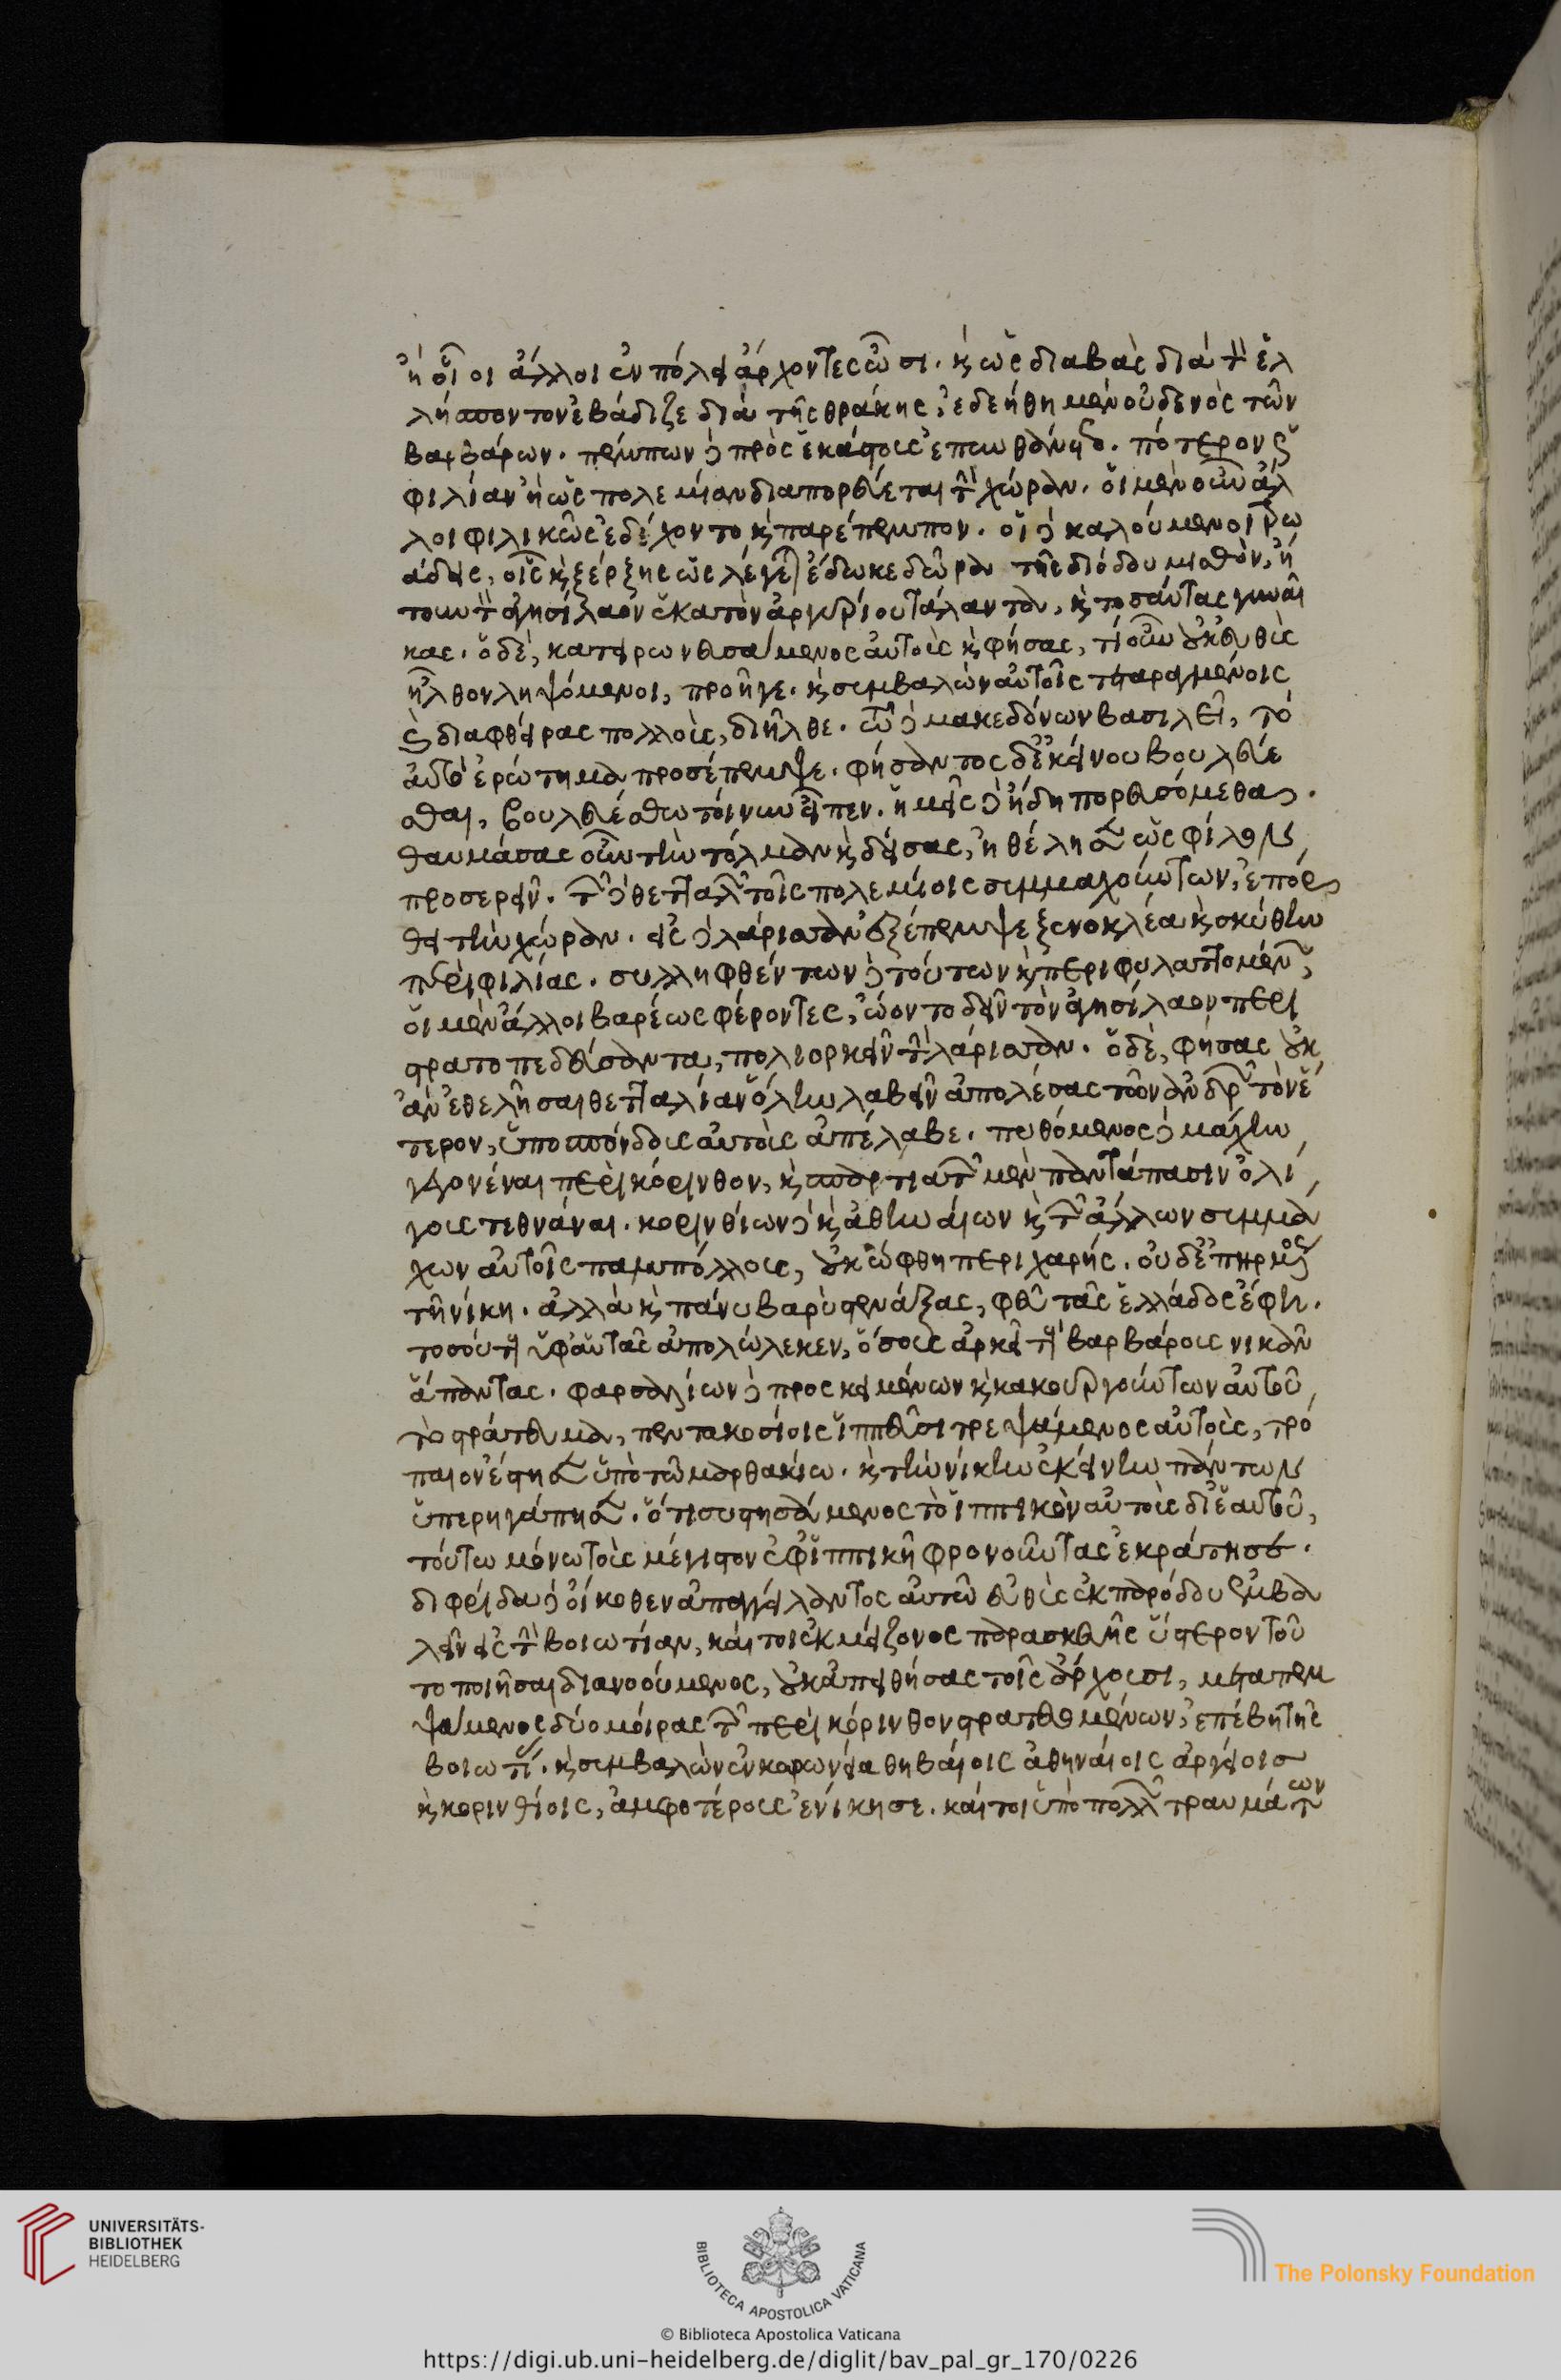 ἢ οἷοι ἄλλοι ἐν πόλει ἄρχοντες ὦσι. καὶ ὡς διαβὰς διὰ τὸν ἑλ
λήσποντον ἐβάδιζε διὰ τῆς θράκης, ἐδεήθη μὲν οὐδενὸς τῶν
βαρβάρων. πέμπων δὲ πρὸς ἑκάστους ἐπυνθάνετο. πότερον ὡς
φιλίαν ἢ ὡς πολεμίαν διαπορεύεται τὴν χώραν. οἱ μὲν οὖν ἄλ
λοι φιλικῶς ἐδέχοντο καὶ παρέπεμπον. οἱ δὲ καλούμενοι τρω
άδεις, οἷς καὶ ξέρξης ὡς λέγεται ἔδωκε δῶρα τῆς διόδου μισθὸν, ἤ
τουν τὸν ἀγησίλαον ἑκατὸν ἀργυρίου τάλαντα, καὶ τοσαύτας γυναῖ
κας. ὁ δὲ, κατειρωνευσάμενος αὐτοὺς καὶ φήσας, τί οὖν οὐκ εὐθὺς
ἦλθον ληψόμενοι, προῆγε. καὶ συμβαλὼν αὐτοῖς παραταγμένοις
καὶ διαφθείρας πολλοὺς, διῆλθε. τῷ δὲ μακεδόνων βασιλεῖ, τὸ
αὐτὸ ἐρώτημα προσέπεμψε. φήσαντος δ' ἐκείνου βουλεύε
σθαι, βουλευέσθω τοίνυν εἶπεν. ἡμεῖς δὲ ἤδη πορευσόμεθα.
θαυμάσας οὖν τὴν τόλμαν καὶ δείσας, ἠθέλησεν ὡς φίλον
προσερεῖν. τῶν δὲ θετταλῶν τοῖς πολεμίοις συμμαχούντων, ἐπόρ
θει τὴν χώραν. εἰς δὲ λάρισσαν ἐξέπεμψε ξενοκλέα καὶ σκύθην
περὶ φιλίας. συλληφθέντων δὲ τούτων καὶ περιφυλαττομένων,
οἱ μὲν ἄλλοι βαρέως φέροντες, ᾤοντο δεῖν τὸν ἀγησίλαον περι
στρατοπεδεύσαντα, πολιορκεῖν τὴν λάρισσαν. ὁ δὲ, φήσας οὐκ
ἂν ἐθελῆσαι θετταλίαν ὅλην λαβεῖν ἀπολέσας τῶν ἀνδρῶν τὸν ἕ
τερον, ὑποσπόνδους αὐτοὺς ἀπέλαβε. πυθόμενος δὲ μάχην
γεγονέναι περὶ κόρινθον, καὶ σπαρτιατῶν μὲν παντάπασιν ὀλί
γους τεθνάναι. κορινθίων δὲ καὶ ἀθηναίων καὶ τῶν ἄλλων συμμά
χων αὐτοῖς παμπόλλους, οὐκ ὤφθη περιχαρής. οὐδ' ἐπηρμένος
τῇ νίκῃ. ἀλλὰ καὶ πάνυ βαρὺ στενάξας, φεῦ τᾶς ἑλλάδος ἔφη.
τοσούτους ὑφ' αὑτᾶς ἀπολώλεκεν, ὅσοις ἀρκεῖ τοὺς βαρβάρους νικᾶν
ἅπαντας. φαρσαλίων δὲ προσκειμένων καὶ κακουργούντων αὐτοῦ
τὸ στράτευμα, πεντακοσίοις ἱππεῦσι τρεψάμενος αὐτοὺς, τρό
παιον ἔστησεν ὑπὸ τῷ ναρθακίῳ. καὶ τὴν νίκην ἐκείνην πάντων
ὑπερηγάπησεν. ὅτι συστησάμενος τὸ ἱππικὸν αὐτὸς δι' ἑαυτοῦ,
τούτῳ μόνῳ τοὺς μέγιστον ἐφ' ἱππικῇ φρονοῦντας ἐκράτησε.
διφρίδα δὲ οἴκοθεν ἀπαγγείλαντος αὐτῷ εὐθὺς ἐκ παρόδου ἐμβα
λεῖν εἰς τὴν βοιωτίαν, καίτοι ἐκ μείζονος παρασκευῆς ὕστερον τοῦ
το ποιῆσαι διανοούμενος, οὐκ ἀπειθήσας τοῖς ἄρχουσι, μεταπεμ
ψάμενος δύο μοίρας τῶν περὶ κόρινθον στρατευομένων, ἐπέβη τῆς
βοιωτίας. καὶ συμβαλὼν ἐν κορωνείᾳ θηβαίοις ἀθηναίοις ἀργείοις
καὶ κορινθίοις, ἀμφοτέρους ἐνίκησε. καίτοι ὑπὸ πολλῶν τραυμάτων
UNIVERSITÄTS-
BIBLIOTHEK
HEIDELBERG
BIBLIOTECA APOSTOLICA VATICANA
The Polonsky Foundation
© Biblioteca Apostolica Vaticana
https://digi.ub.uni-heidelberg.de/diglit/bav_pal_gr_170/0226